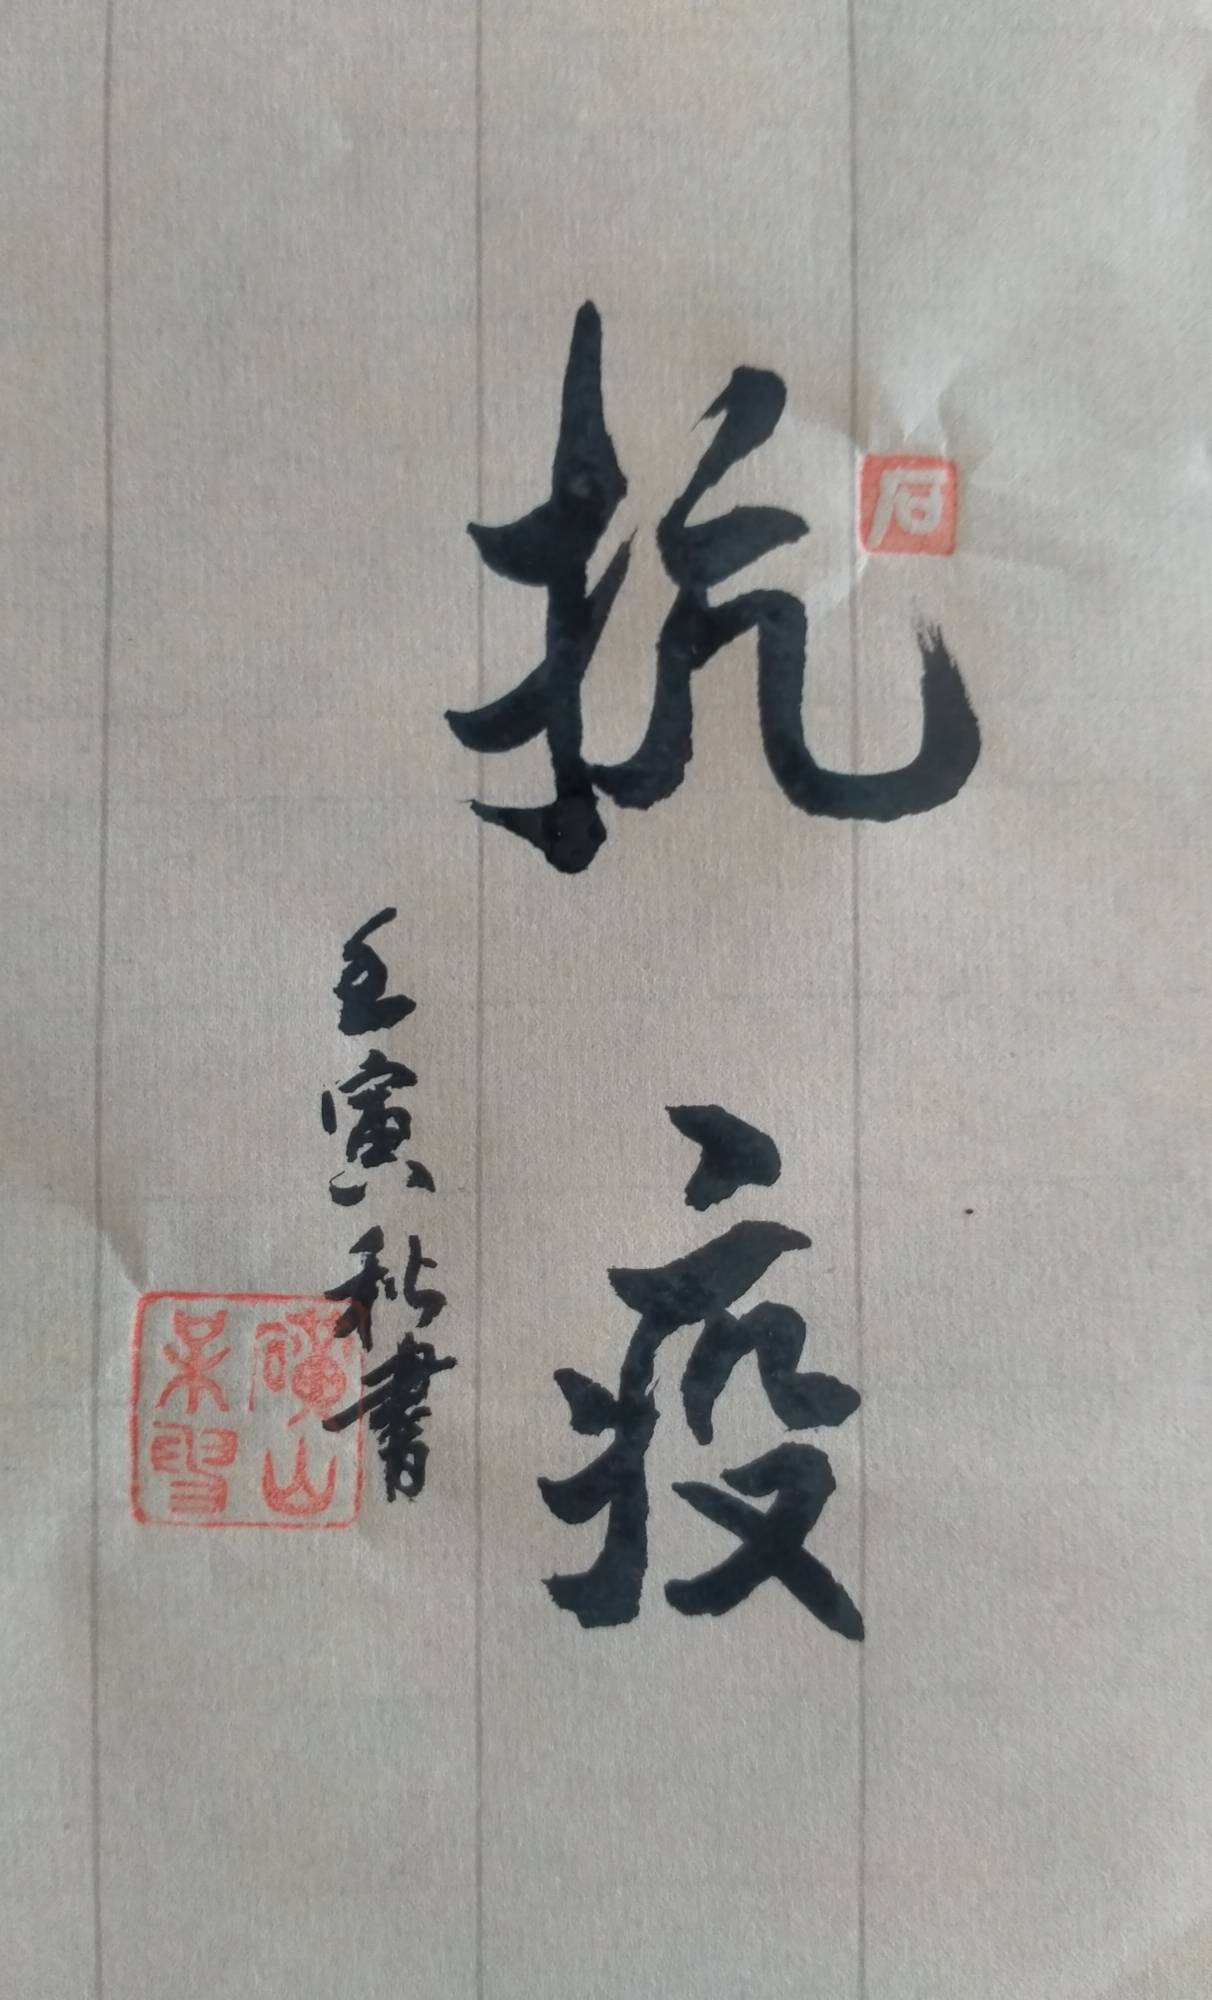 抗疫
壬寅秋書
石